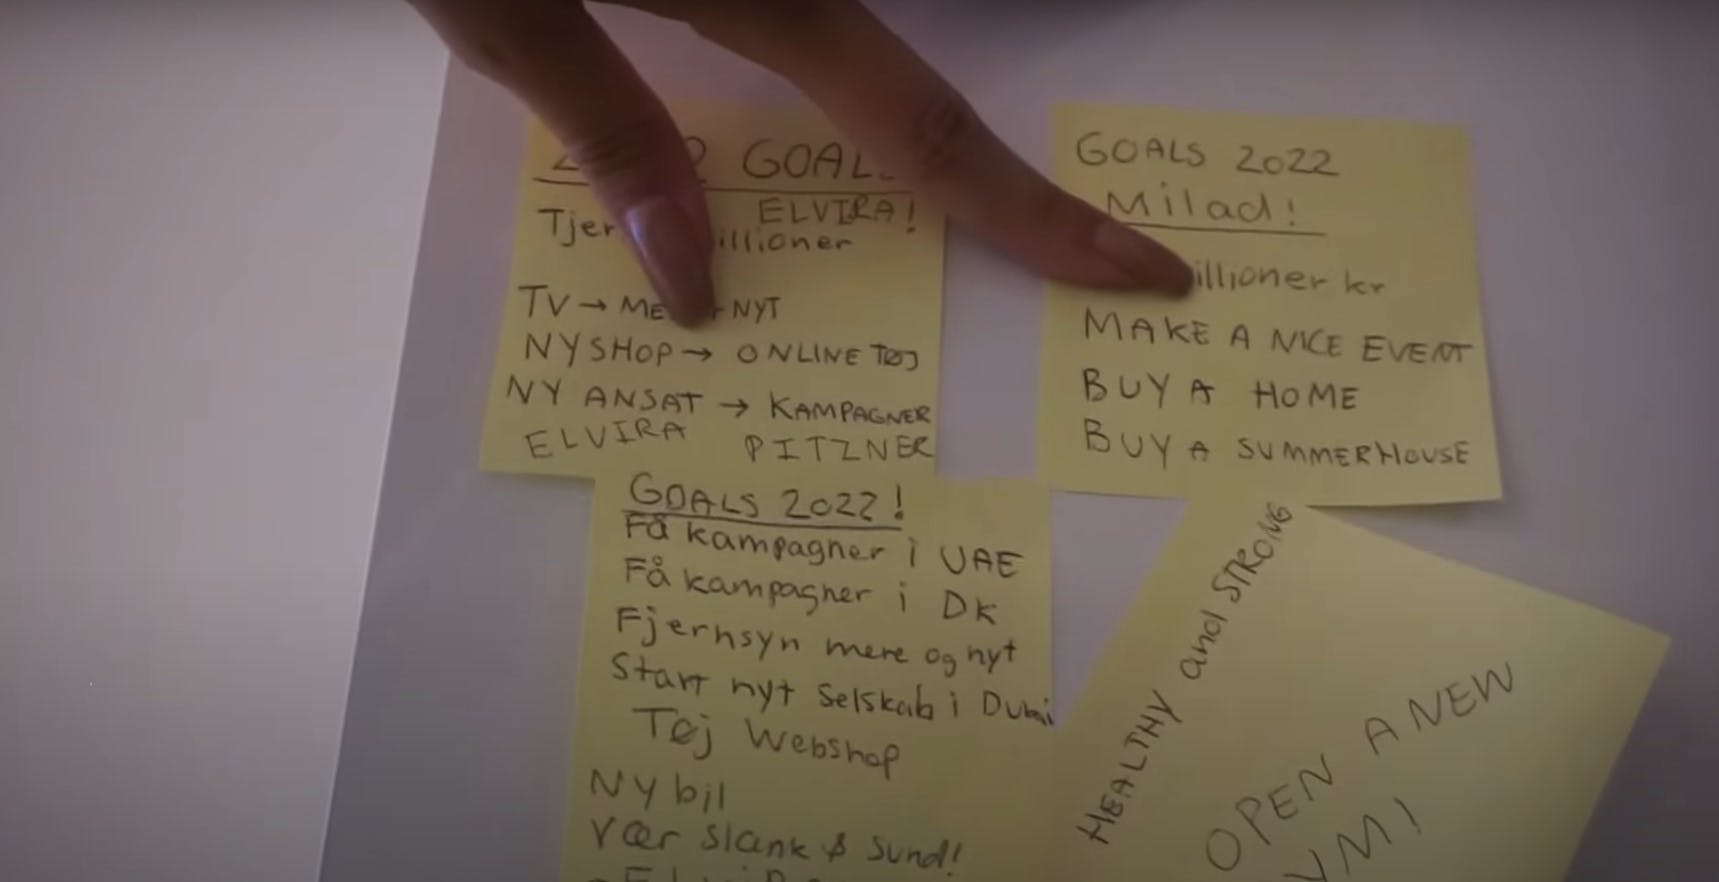 GOAL
ELVIRA!
illioner
TV → NYT
NY SHOP → ONLINE TØJ
NY ANSAT → KAMPAGNER
ELVIRA PITZNER
GOALS 2022
Milad!
illioner kr
MAKE A NICE EVENT
BUY A HOME
BUY A SUMMERHOUSE
GOALS 2022!
Få kampagner i UAE
Få kampagner i DK
Fjernsyn mere og nyt
Start nyt selskab i Dubai
Tøj Webshop
NY bil
Vær slank & sund!
HEALTHY and STRONG
OPEN A NEW